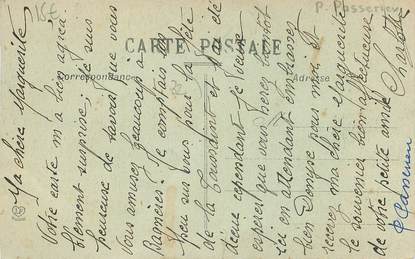 CARTE POSTALE
Correspondance
Adresse
Ma chère Marguerite
Votre carte m'a bien agréa
blement surprise, je suis
heureuse de savoir que vous
vous amusez beaucoup à
Ragnères. Je comptais un
peu sur vous pour la fête
de la Toussaint et j'ai été
déçue cependant je veux
espérer que vous serez bientôt
ici en attendant embrassez
bien Denyse pour moi et
recevez ma chère Marguerite
le souvenir bien affectueux
de votre petite amie
Charlotte